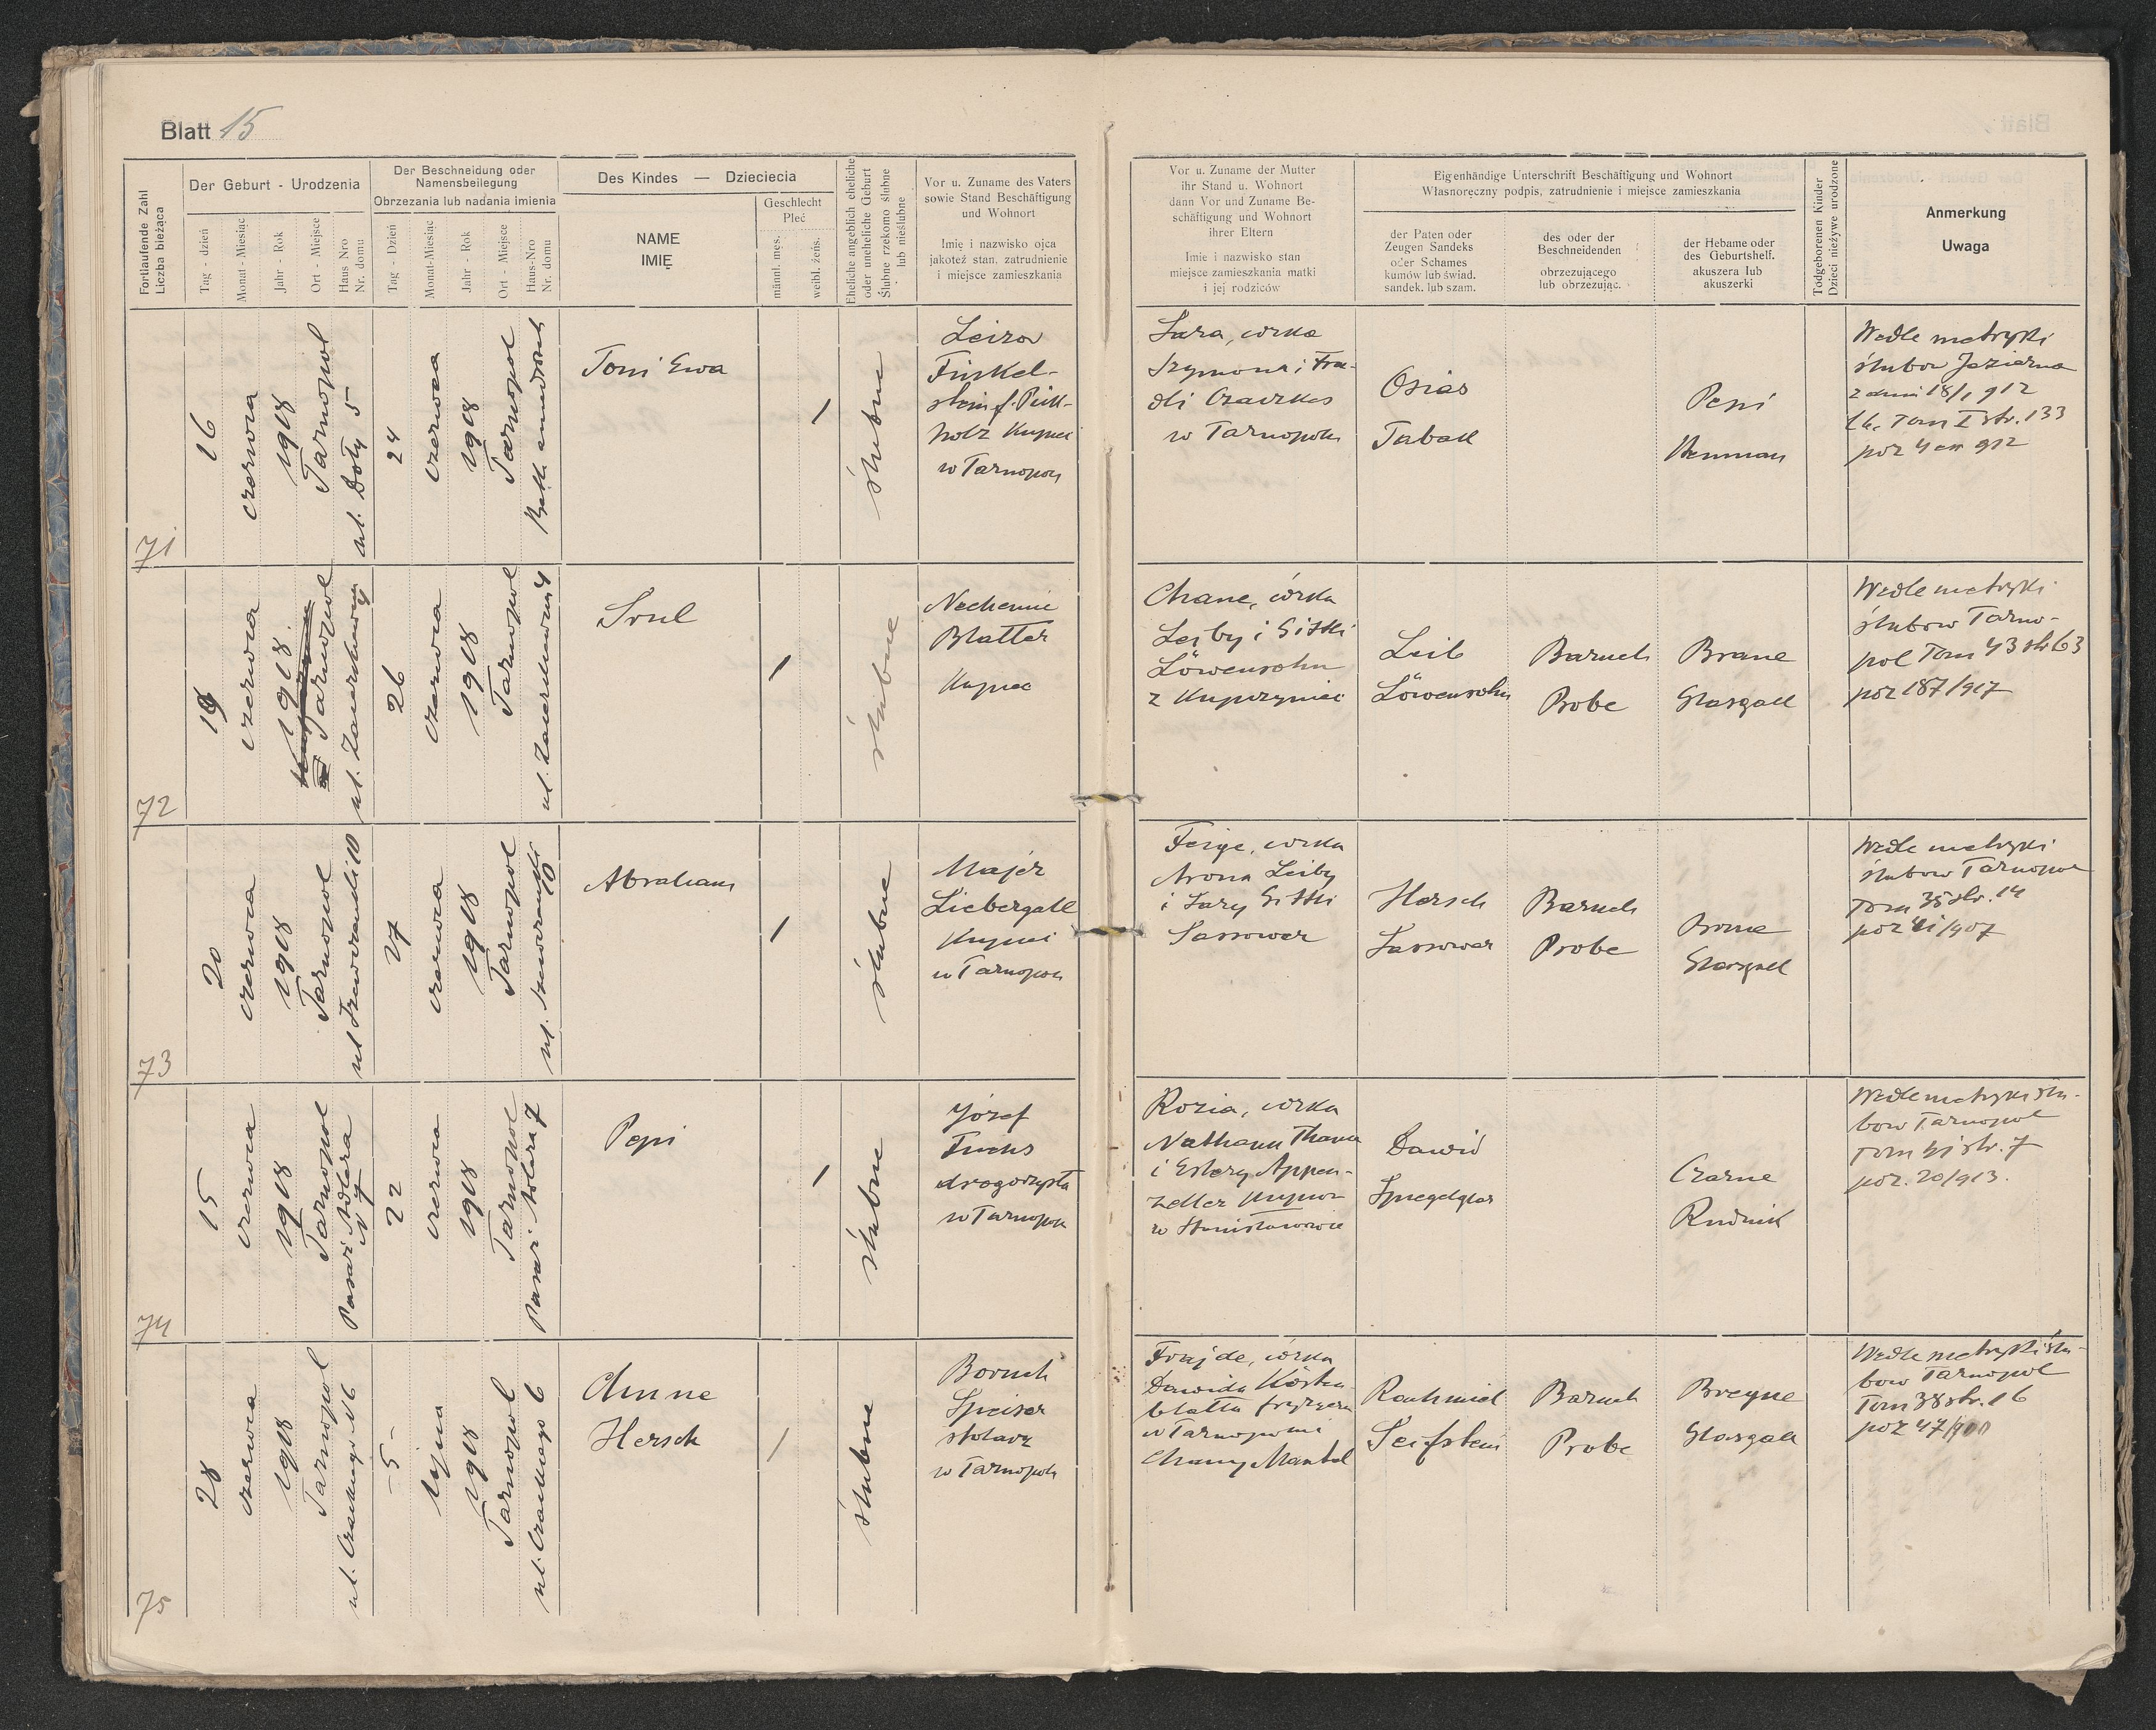 Blatt 15
Fortlaufende Zahl
Liczba bieżąca
Der Geburt - Urodzenia
Tag - dzień
Monat - Miesiąc
Jahr - Rok
Ort - Miejsce
Haus Nro
Nr. domu
Der Beschneidung oder
Namensbeilegung
Obrzezania lub nadania imienia
Tag - Dzień
Monat-Miesiąc
Jahr - Rok
Ort - Miejsce
Haus-Nro
Nr. domu
Des Kindes — Dziecięcia
NAME
IMIĘ
Geschlecht
Płeć
männl. męs.
weibl. żeńs.
Eheliche angeblich eheliche
oder uneheliche Geburt
Ślubne rzekomo ślubne
lub nieślubne
Vor u. Zuname des Vaters
sowie Stand Beschäftigung
und Wohnort
Imię i nazwisko ojca
jakoteż stan. zatrudnienie
i miejsce zamieszkania
Vor u. Zuname der Mutter
ihr Stand u. Wohnort
dann Vor und Zuname Be-
schäftigung und Wohnort
ihrer Eltern
Imie i nazwisko stan
miejsce zamieszkania matki
i jej rodziców
Eigenhändige Unterschrift Beschäftigung und Wohnort
Własnoręczny podpis, zatrudnienie i miejsce zamieszkania
der Paten oder
Zeugen Sandeks
oder Schames
kumów lub świad.
sandek. lub szam.
des oder der
Beschneidenden
obrzezującego
lub obrzezując.
der Hebame oder
des Geburtshelf.
akuszera lub
akuszerki
Todgeborenen Kinder
Dzieci nieżywe urodzone
Anmerkung
Uwaga
71
16
czerwca
1918
Tarnopol
ul. Doły 5
24
czerwca
1918
Tarnopol
Toni Ewa
/
ślubne
Leizor
Finkel-
stein f. Pick-
holz Kupiec
w Tarnopolu
Sara, córka
Szymona i Fra-
dli Czaczkes
w Tarnopolu
Osias
Taback
Pepi
Wedle metryki
ślubów Jezierna
z dnia 18/1 912
Tom I str. 133
poz 4 912
72
19
czerwca
1918
Tarnopol
26
czerwca
1918
Tarnopol
Srul
/
ślubne
Nechemie
Blatter
Kupiec
Chane, córka
Leiby i Gittli
Löwensohn
z Kupczyniec
Leib
Löwensohn
Baruch
Probe
Brane
Glasgall
Wedle metryki
ślubów Tarno-
pol Tom 43 str 63
poz 187/917
73
20
czerwca
1918
Tarnopol
27
czerwca
1918
Tarnopol
Abraham
/
ślubne
Majer
Liebergall
Kupiec
w Tarnopolu
Feige, córka
Arona Leiby
i Sary Gittli
Sassower
Hersch
Sassower
Baruch
Probe
Brane
Glasgall
Wedle metryki
ślubów Tarnopol
Tom 38 str. 14
poz 41/907
74
15
czerwca
1918
Tarnopol
Pasaż Adlera
N 7
22
czerwca
1918
Tarnopol
Pasaż Adlera 7
Pepi
/
ślubne
Józef
Fuchs
drogorzysta
w Tarnopolu
Rozia, córka
Nathana Thana
i Estery Appen-
zeller Kupców
w Stanisławowie
Dawid
Spiegelglas
Czarne
Rudnik
Wedle metryki ślu-
bów Tarnopol
Tom 41 str. 7
poz. 20/913.
75
28
czerwca
1918
Tarnopol
ul. Czackiego N 6
-5-
lipca
1918
Tarnopol
ul. Czackiego 6
Chune
Hersch
/
ślubne
Boruch
Speiser
stolarz
w Tarnopolu
Frajde, córka
Dawida Kosten-
blatta fryzjera
w Tarnopolu i
Chany Mantel
Rachmiel
Seifstein
Baruch
Probe
Breyne
Glasgall
Wedle metryki ślu-
bów Tarnopol
Tom 38 str. 16
poz 47/